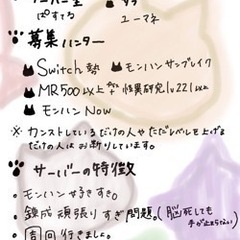 ぱすてる
ユーマネ
募集ハンター
Switch勢 モンハンサンブレイク
MR500以上 怪異研究lv221以上
モンハンNow
※カンストしているだけの人やただレベルを上げた
だけの人はお断りしています。
サーバーの特徴
・モンハン好きすぎ。
・錬成頑張りすぎ問題。(脳死しても
手が止まらない)
・周回行きました。